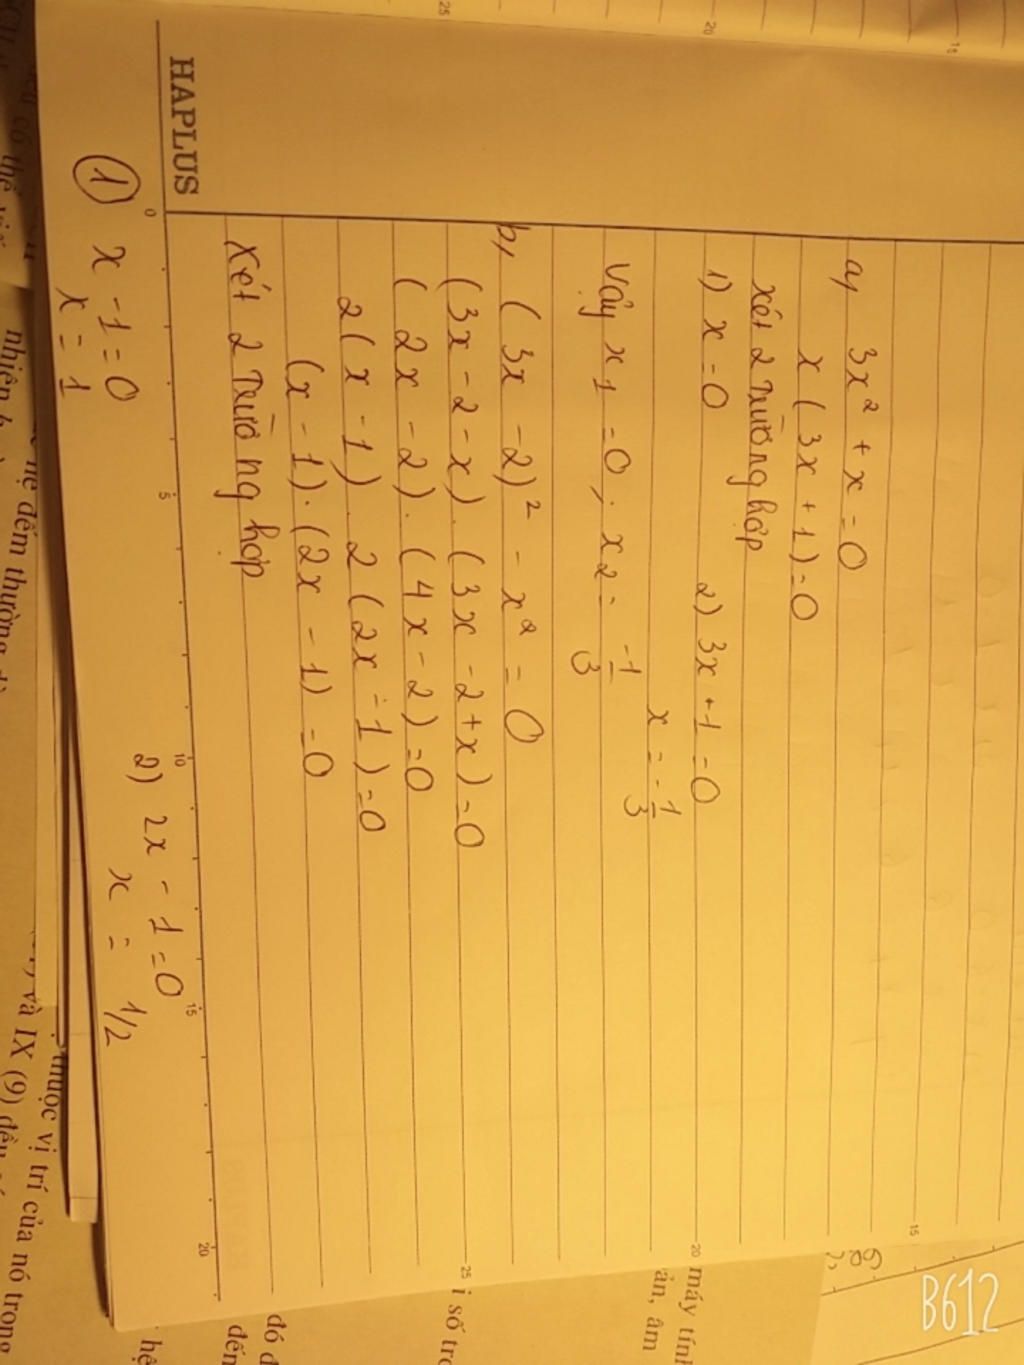 HAPLUS
a, 3x² + x = 0
x ( 3x + 1) = 0
xét 2 Trường hợp
1) x = 0 2) 3x + 1 = 0
x = -1/3
Vậy x1 = 0 ; x2 = -1/3
b, ( 3x - 2)² - x² = 0
(3x - 2 - x) . (3x - 2 + x) = 0
( 2x - 2) . ( 4x - 2) = 0
2 ( x - 1) . 2 ( 2x - 1 ) = 0
(x - 1) . (2x - 1) = 0
xét 2 Trường hợp
0 5 10 15 20
1 x - 1 = 0 2) 2x - 1 = 0
x = 1 x = 1/2
nhiên
mẹ đếm thường
và IX (9) đều
thuộc vị trí của nó trong
máy tính
ản, âm
i số
đó
đến
hệ
25
20
15
20
25
B612